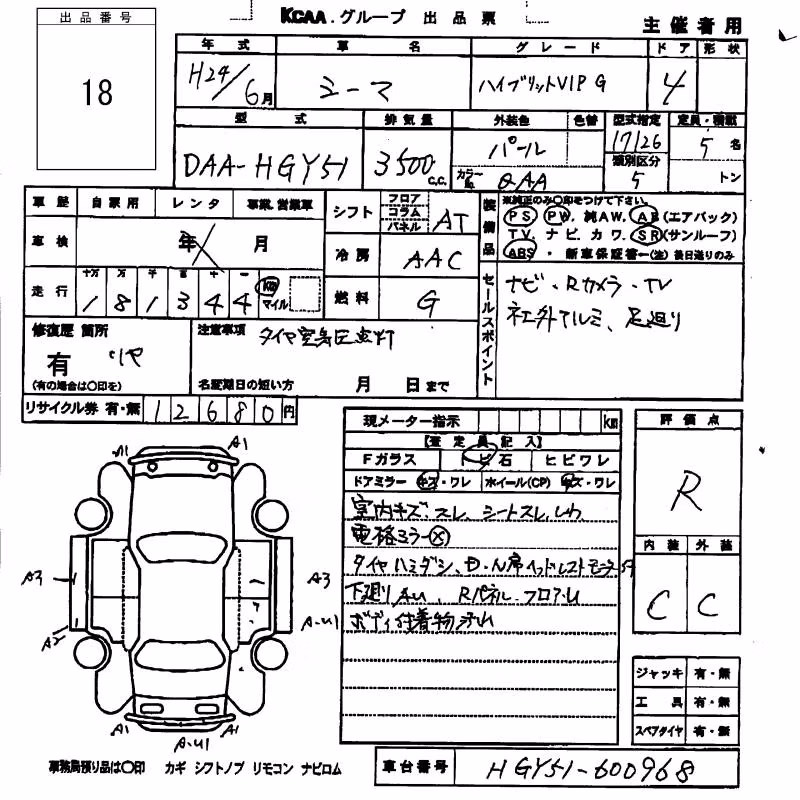 出品番号
18
KCAA.グループ 出品票
主催者用
年式 車名 グレード ドア 形状
H24/6月 シーマ ハイブリットVIP G 4
型式 排気量 外装色 色替 型式指定 定員・積載
DAA-HGY51 3500 C.C. パール 17126 5名
カラーNo. QAA 類別区分 5 トン
車歴 自家用 レンタ 事業.営業車
車検 年 月
走行 十万 万 千 百 十 一
181344 km マイル
シフト フロア コラム パネル AT
冷房 AAC
燃料 G
装備品 ※純正のみ○印をつけて下さい。
PS PW.純AW.AB(エアバック)
TV.ナビ.カワ.SR(サンルーフ)
ABS・新車保証書-(注)後日送りのみ
セールスポイント
ナビ・Rカメラ・TV
社外アルミ、足廻り
修復歴 箇所
有
(有の場合は○印を)
注意事項 タイヤ空気圧点灯
名変期日の短い方 月 日まで
リサイクル券 有・無 12680円
現メーター指示 km
【査定員記入】
Fガラス トビ石 ヒビワレ
ドアミラー キズ・ワレ ホイール(CP) キズ・ワレ
室内キズ.スレ.シートスレ.しわ
電格ミラー×
タイヤハミダシ、D・N席ヘッドレストモニター
下廻りAU、Rパネル.フロアU
ボディ付着物
評価点
R
内装 外装
C C
A1 A1
A3 A3
A2 A-U1
A1 A1
A-U1
ジャッキ 有・無
工具 有・無
スペアタイヤ 有・無
事務局預り品は○印 カギ シフトノブ リモコン ナビロム
車台番号 HGY51-600968